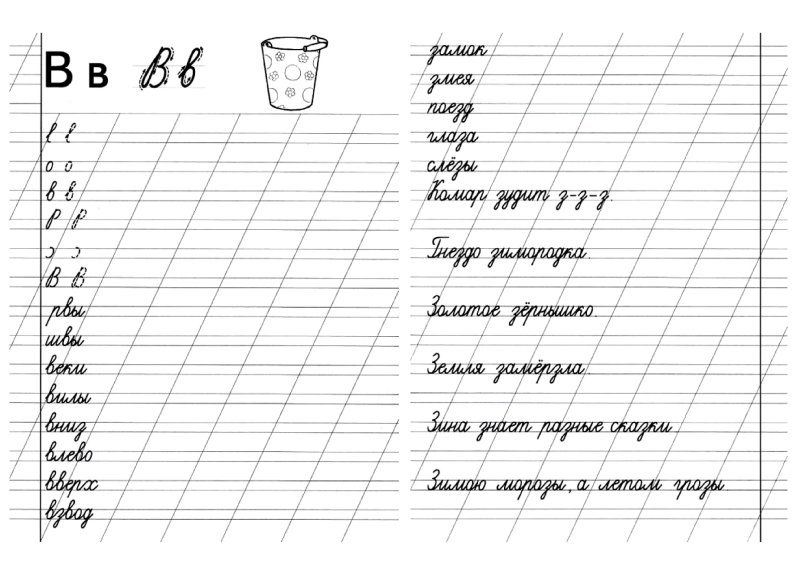 В в В в
в в
о о
в в
Р Р
э э
В В
рвы
швы
веки
вилы
вниз
влево
вверх
взвод
замок
змея
поезд
глаза
слёзы
Комар зудит з-з-з.
Гнездо зимородка.
Золотое зёрнышко.
Земля замёрзла.
Зина знает разные сказки.
Зимою морозы, а летом грозы